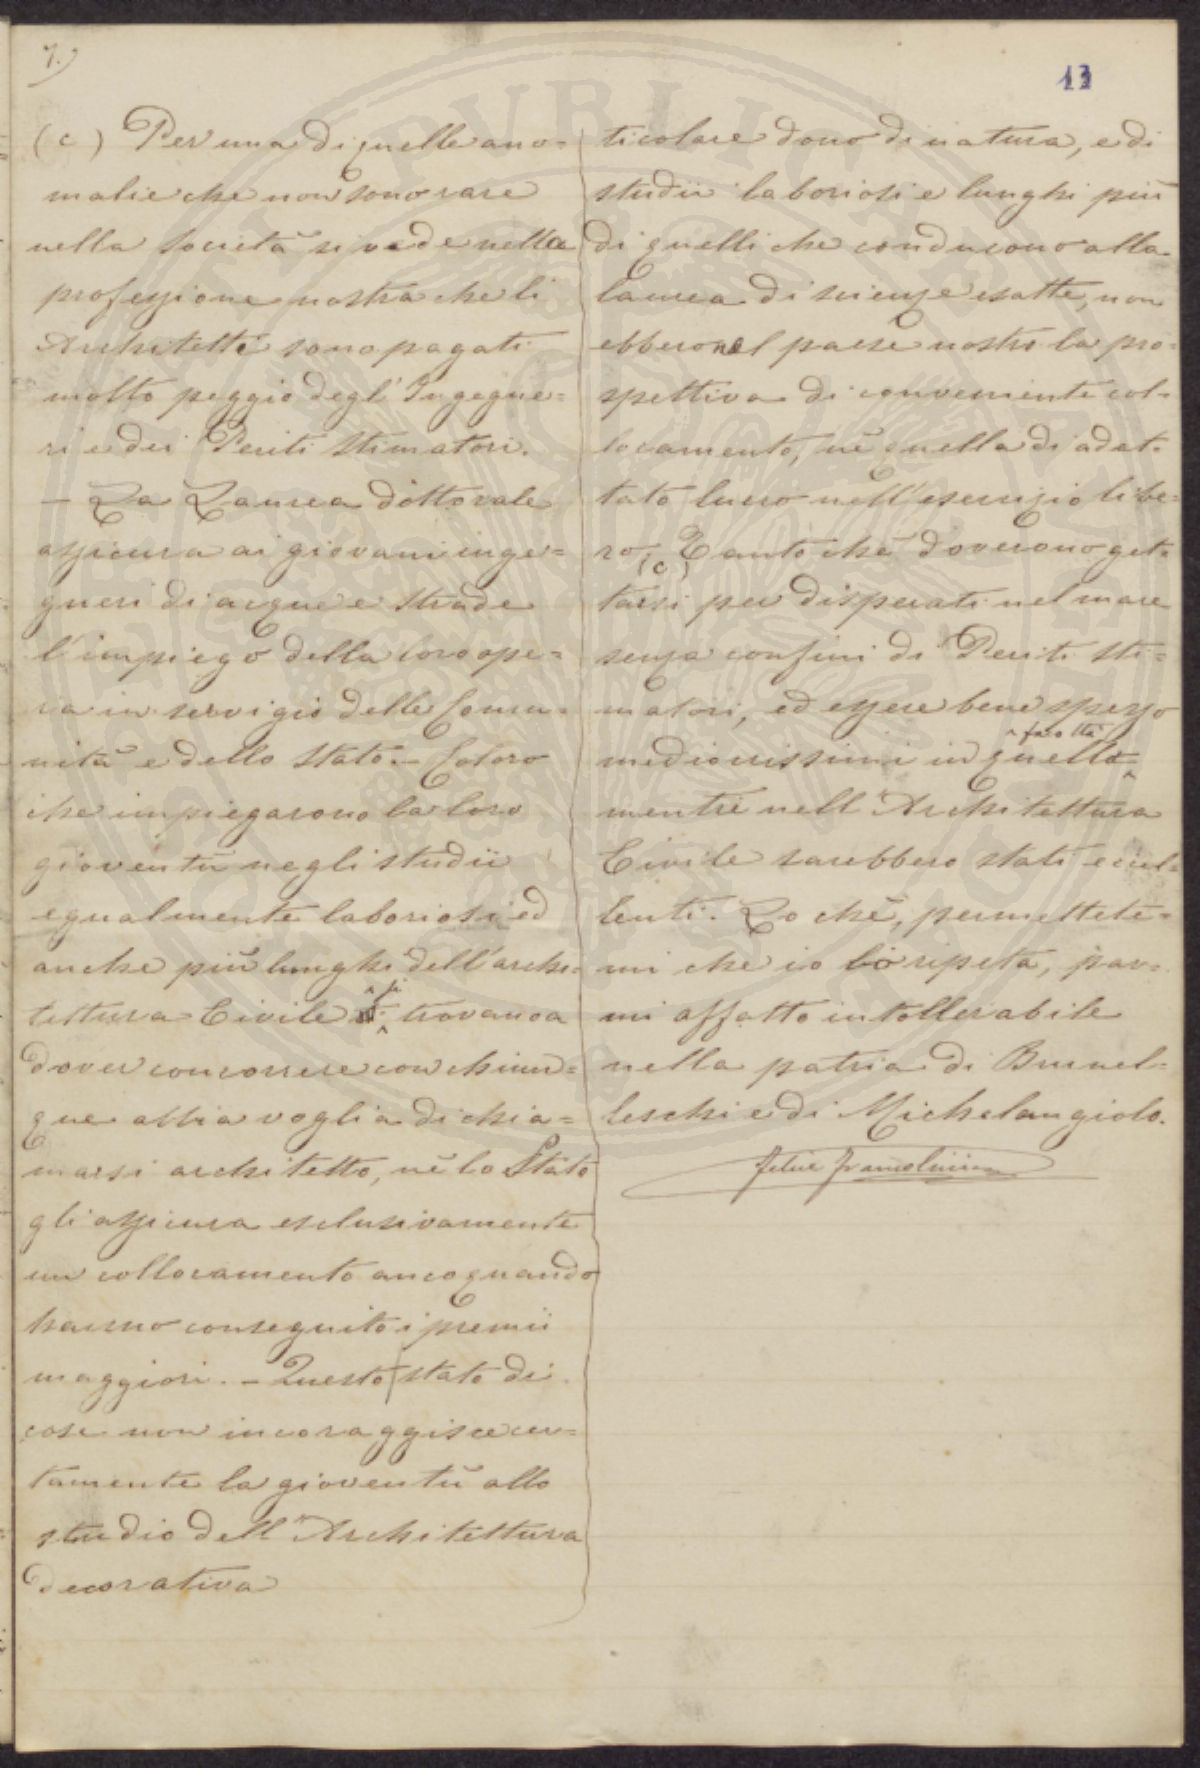 7.)
13
(c) Per una di quelle ano=
malie che non sono rare
nella società si vede nella
professione nostra che li
Architetti sono pagati
molto peggio degl'Ingegne=
ri e dei Periti Stimatori.
— La Laurea dottorale
assicura ai giovani inge=
gneri di acque e strade
l'impiego della loro ope=
ra in servigio delle Comu=
nità e dello Stato. – Coloro
che impiegarono la loro
gioventù negli studii
egualmente laboriosi ed
anche più lunghi dell'archi=
tettura Civile si trovano a
dover concorrere con chiun=
que abbia voglia di chia=
marsi architetto, nè lo Stato
gli assicura esclusivamente
un collocamento anco quando
hanno conseguito i premii
maggiori. – Questo stato di
cose non incoraggisce cer=
tamente la gioventù allo
studio dell'Architettura
decorativa
ticolare dono di natura, e di
studii laboriosi e lunghi più
di quelli che conducono alla
laurea di scienze esatte, non
ebbero nel paese nostro la pro=
spettiva di conveniente col=
locamento, nè quella di adat=
tato lucro nell'esercizio libe=
ro; (c) Tantochè doverono get=
tarsi per disperati nel mare
senza confini di Periti sti=
matori, ed essere bene spesso
facoltà
mediocrissimi in quella
mentre nell'Architettura
Civile sarebbero stati eccel=
lenti. Lo chè, permettete=
mi che io lo ripeta, par=
mi affatto intollerabile
nella patria di Brunel=
leschi e di Michelangiolo.
Felice Francolini